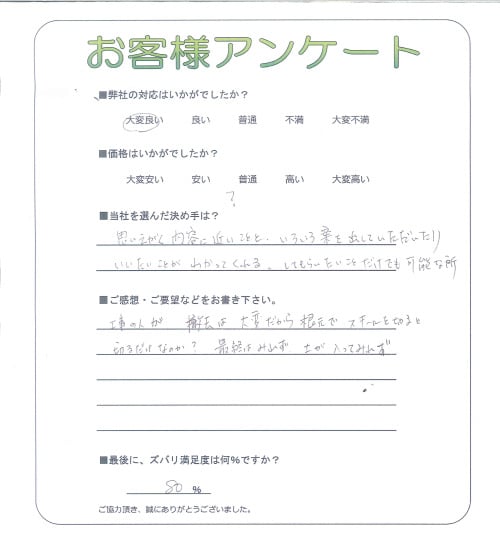 お客様アンケート
■弊社の対応はいかがでしたか?
大変良い 良い 普通 不満 大変不満
■価格はいかがでしたか?
大変安い 安い 普通 高い 大変高い
?
■当社を選んだ決め手は?
思いえがく内容に近いことと、いろいろ案を出していただいたり
いいたいことがわかってくれる。してもらいたいことだけでも可能な所
■ご感想・ご要望などをお書き下さい。
工事の人が 撤去は大変だから根元でスチールを切ると
切るだけなのか? 最終はみれず 土が入ってみれず
■最後に、ズバリ満足度は何%ですか?
80 %
ご協力頂き、誠にありがとうございました。